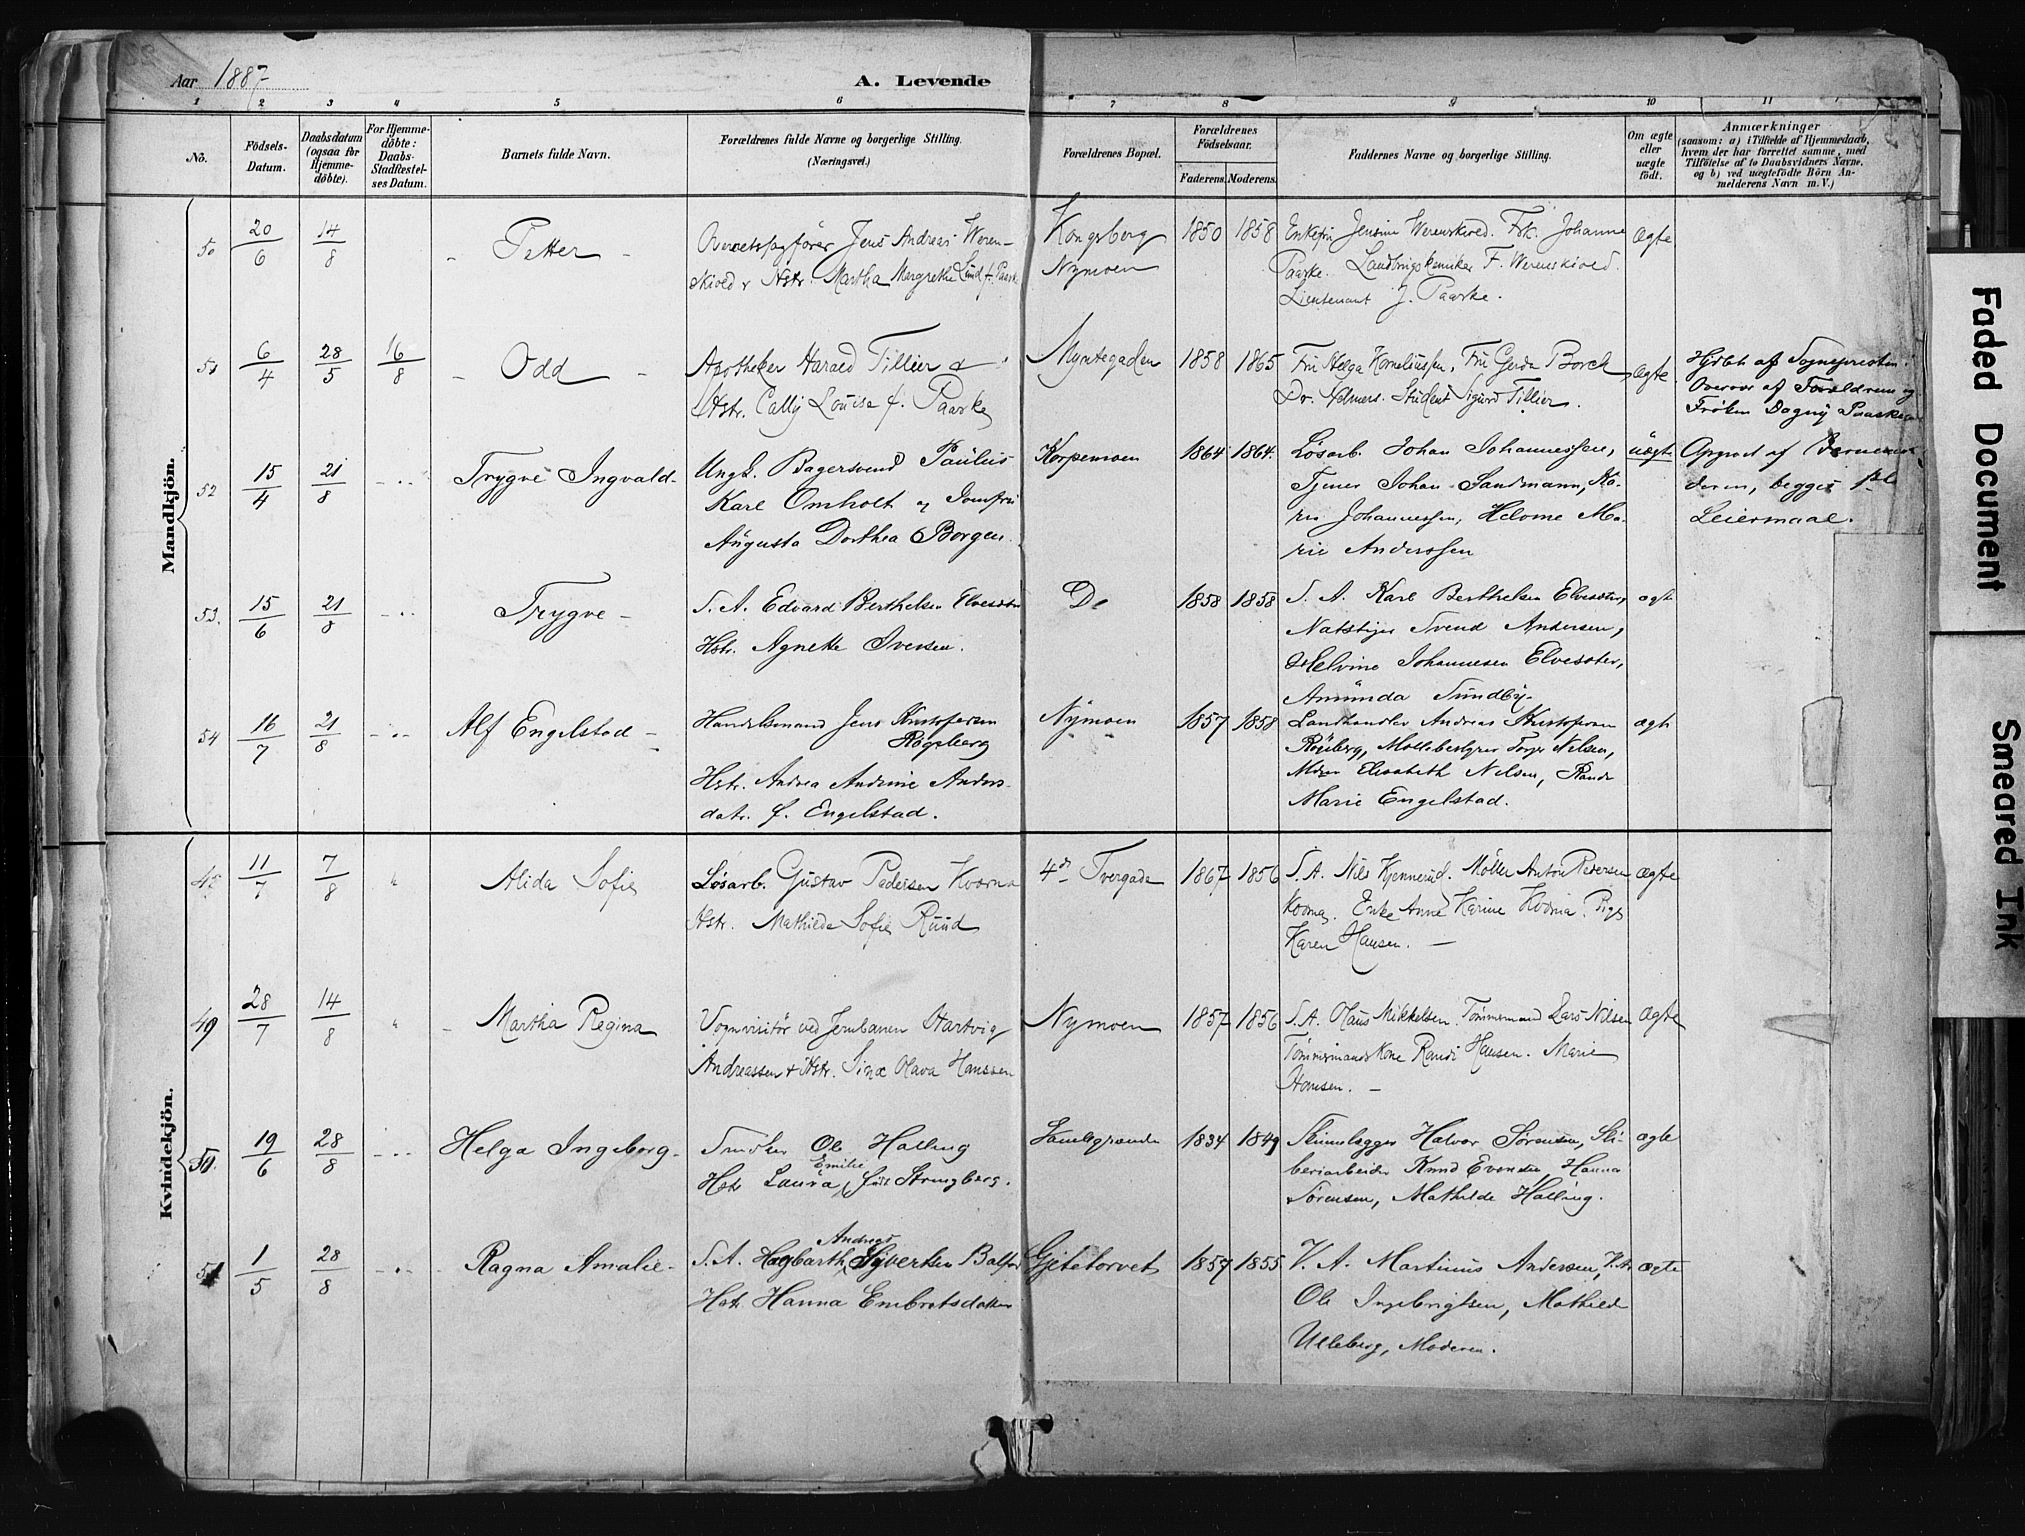 Aar 1887
A. Levende
1 2 3 4 5 6 7 8 9 10 11
No.
Födsels-
Datum.
Daabsdatum
(ogsaa for
Hjemme-
döbte).
For Hjemme-
döbte:
Daabs-
Stadfæstel-
ses Datum.
Barnets fulde Navn.
Forældrenes fulde Navne og borgerlige Stilling.
(Næringsvei.)
Forældrenes Bopæl.
Forældrenes
Födselsaar.
Faderens. Moderens.
Faddernes Navne og borgerlige Stilling.
Om ægte
eller
uægte
födt.
Anmærkninger
(saasom: a) i Tilfælde af Hjemmedaab,
hvem der har forrettet samme, med
Tilföielse af to Daabsvidners Navne,
og b) ved uægtefödte Börn An-
melderens Navn m. V.)
Mandkjön.
50 20/6 14/8 - Petter -
Overretssagfører Jens Andreas Weren-
skiold & Hstr. Martha Margrethe Lund f. Paaske
Kongsberg
Nymoen
1850 1858
Enkefru Jensine Werenskiold. Frk. Johanne
Paaske. Landbrugskemiker F. Werenskiold.
Lieutenant J. Paaske.
Ægte
51 6/4 28/5 16/8 - Odd -
Apotheker Harald Tillier &
Hstr. Cally Louise f. Paaske
Myntegaden
1858 1865
Fru Helga Korneliussen, Fru Gerda Borch
Dr. Helmers. Student Sigurd Tillier.
Ægte
Hjdbt af Sognepresten.
Overvær af Forældrene og
Frøken Dagny Paaske
52 15/4 21/8 - " - Trygve Ingvald -
Ungk. Bagersvend Paulus
Karl Omholt og Jomfru
Augusta Dorthea Borgen.
Korpemoen
1864 1864.
Løsarb. Johan Johannessen,
Tjener Johan Sandmann, Ka-
ren Johannessen, Helene Ma-
rie Anderssen
uægte
Opgivet af Barnemo-
deren, begges 1ste
Leiermaal.
53. 15/6 21/8 - " - Trygve -
S. A. Edvard Berthelsen Elvesæter
Hstr. Agnette Iversen.
Do
1858 1858
S. A. Karl Berthelsen Elvesæter,
Natstiger Svend Andersen,
Helvine Johannesen Elvesæter,
Amunda Sundby.
ægte
54 16/7 21/8 - " - Alf Engelstad -
Handelsmand Jens Kristofersen
Rogsberg
Hstr. Andrea Andrine Anders-
datr. f. Engelstad.
Nymoen
1857 1858
Landhandler Andreas Kristofersen
Møllebestyrer Torger Nilsen,
Elisabeth Nilsen,
Marie Engelstad.
ægte
Kvindekjön.
48 11/7 7/8 " Alida Sofie
Løsarb. Gustav Pedersen Kværna
Hstr. Mathilde Sofie Ruud
4de Tvergade
1867 1856
S. A. Nils Kjennerud. Møller Anton Pedersen
Kværna. Enke Anne Karine Kværna. Pige
Karen Hansen. -
Ægte
49 28/7 14/8 " - Martha Regina
Vognvisitør ved Jernbanen Hartvig
Andreassen & Hstr. Sina Olava Hanssen
Nymoen
1857 1856
S. A. Olaus Mikkelsen. Tømmermand Lars Nilsen
Tømmermandskone Randi Hansen. Marie
Hansen. -
Ægte
50. 19/6 28/8 - " - Helga Ingeborg -
Snedker Ole Halling
Emilie
Hstr Laura, født Strengberg.
1834 1849
Skinnelægger Halvor Sørensen, Sli-
beriarbeider Knud Evensen, Hanna
Sørensen, Mathilde Halling.
ægte
51 1/5 28/8 - " - Ragna Amalie -
Andreas
S. A. Hagbarth Syvertsen
Hstr Hanna Embretsdatter
Gjetetorvet
1857 1855
V. A. Martinus Andersen, V. A.
Ole Ingebrigtsen, Mathilde
Ulleberg, Moderen.
ægte
Faded Document
Smeared Ink